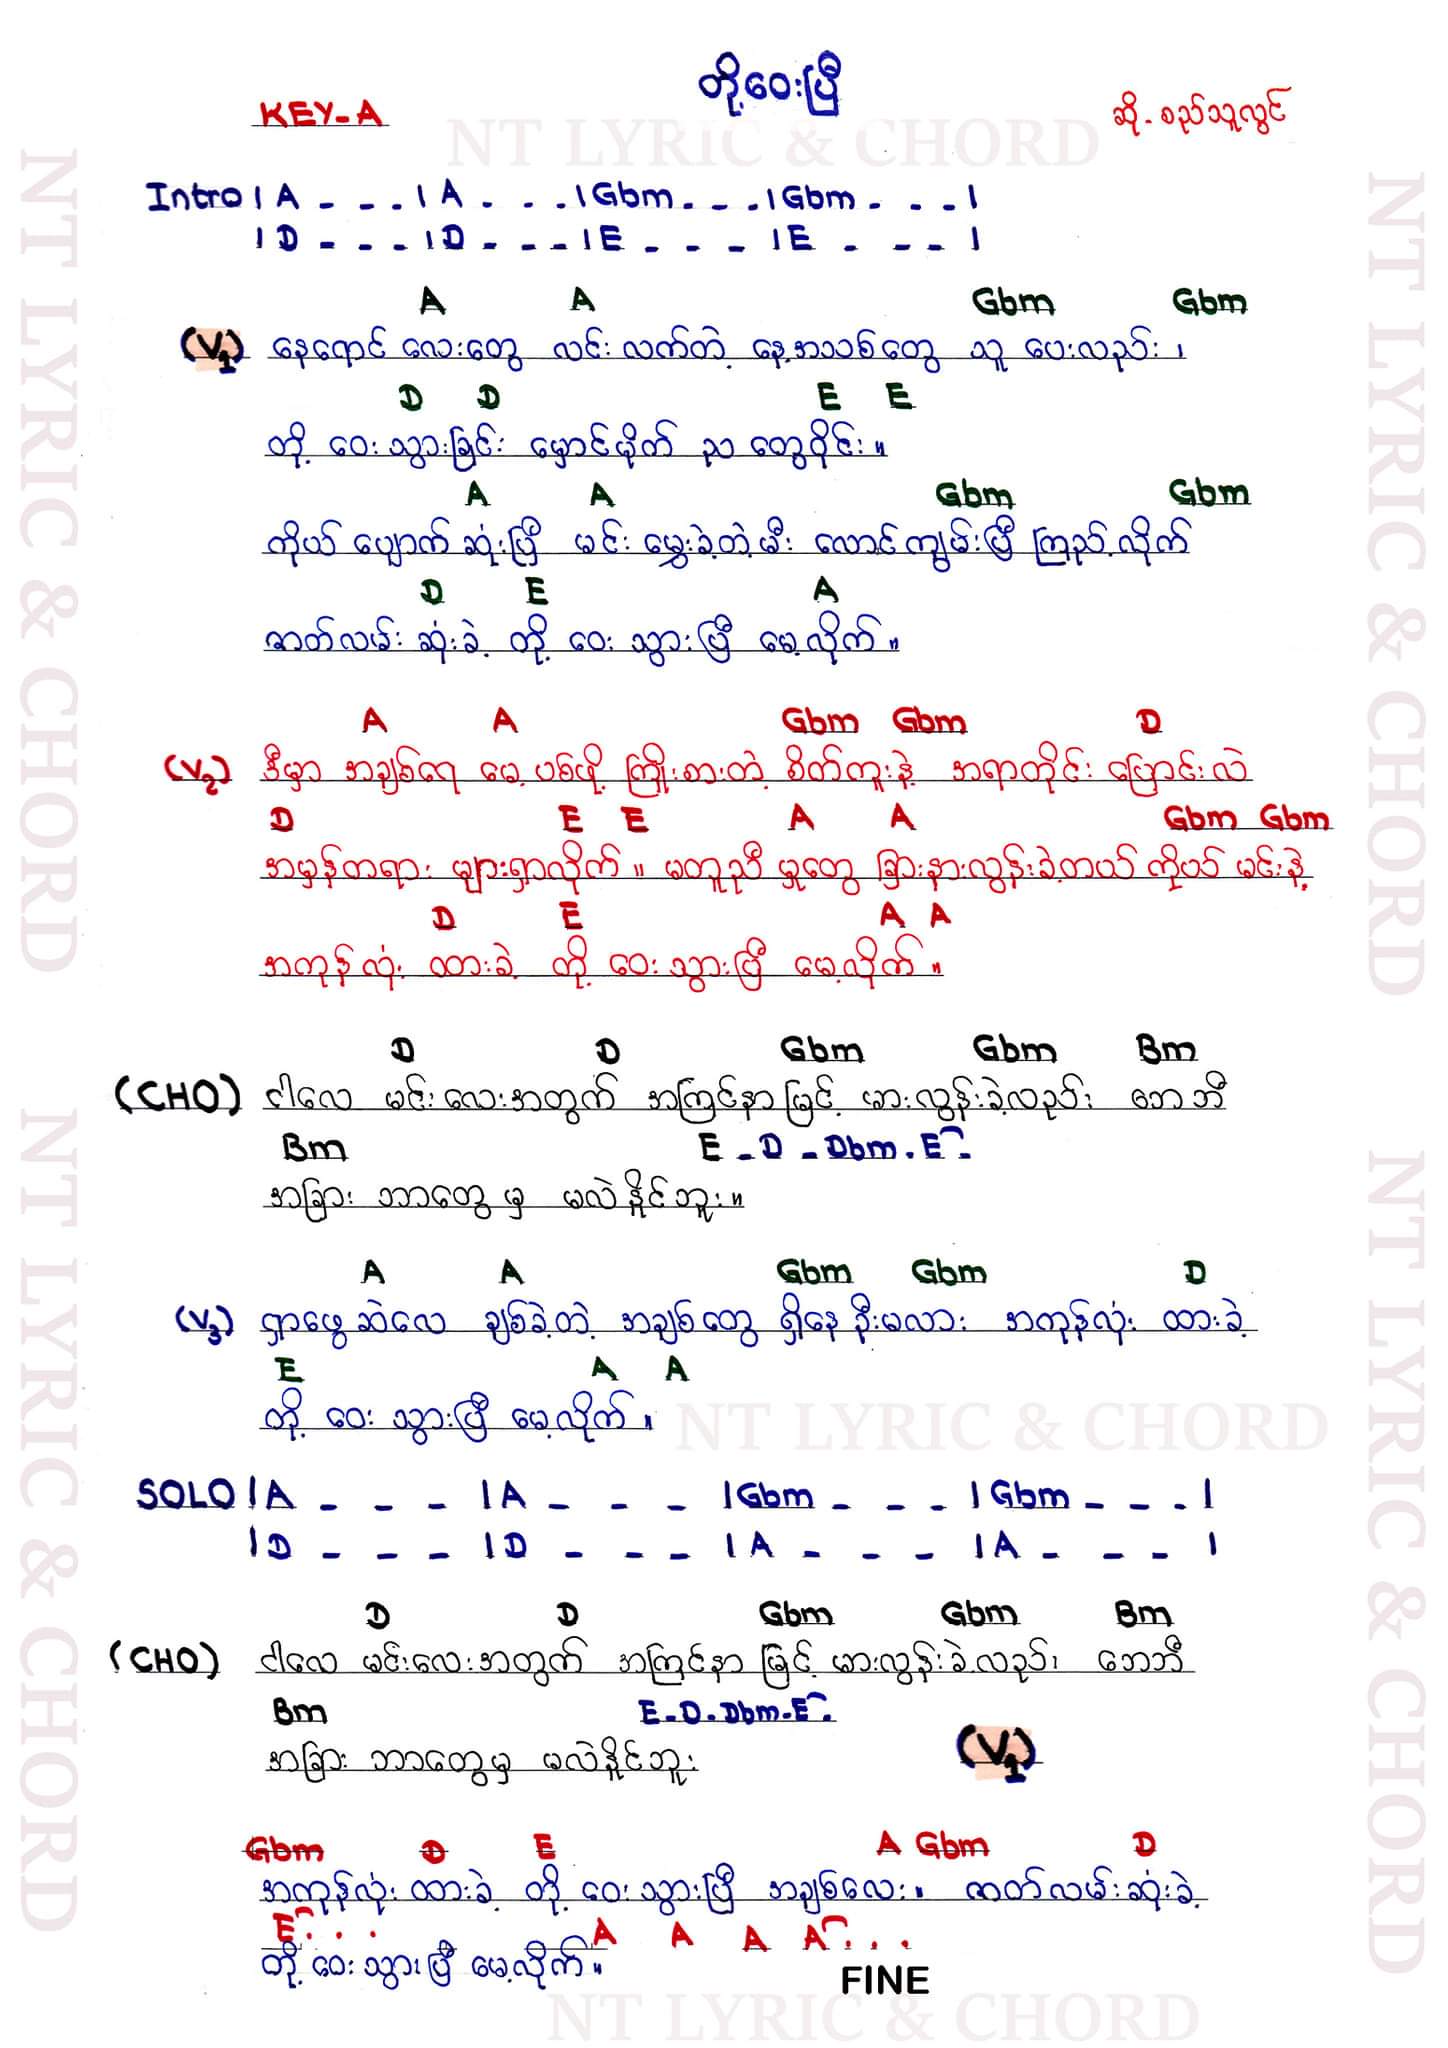 တို့ဝေးပြီ
KEY-A
ဆို - စည်သူလွင်
NT LYRIC & CHORD
Intro | A - - - | A - - - | Gbm - - - | Gbm - - - |
| D - - - | D - - - | E - - - | E - - - |
A A Gbm Gbm
(V1) နေရောင် လေးတွေ လင်း လက်တဲ့ နေ့အသစ်တွေ သူ ပေးလည်း ၊
D D E E
တို့ ဝေး သွားခြင်း မှောင်မိုက် ည တွေဝိုင်း ။
A A Gbm Gbm
ကိုယ် ပျောက် ဆုံးပြီ မင်း မွှေးခဲ့တဲ့မီး လောင်ကျွမ်းပြီ ကြည့်လိုက်
D E A
ဇာတ်လမ်း ဆုံးခဲ့ တို့ ဝေး သွားပြီ မေ့လိုက် ။
A A Gbm Gbm D
(V2) ဒီမှာ အချစ်ရေ မေ့ ပစ်ဖို့ ကြိုးစားတဲ့ စိတ်ကူးနဲ့ အရာတိုင်း ပြောင်းလဲ
D E E A A Gbm Gbm
အမှန်တရား များရှာလိုက် ။ မတူညီ မှုတွေ ခြားနားလွန်းခဲ့တယ် ကိုယ် မင်းနဲ့
D E A A
အကုန်လုံး ထားခဲ့ တို့ ဝေး သွားပြီ မေ့လိုက် ။
D D Gbm Gbm Bm
(CHO) ငါလေ မင်းလေးအတွက် အကြင်နာမြင့် မားလွန်းခဲ့လည်း ဘေဘီ
Bm E - D - Dbm - E
အခြား ဘာတွေ မှ မလဲနိုင်ဘူး ။
A A Gbm Gbm D
(V3) ရှာဖွေ ဆဲလေ ချစ်ခဲ့တဲ့ အချစ်တွေ ရှိနေ ဦးမလား အကုန်လုံး ထားခဲ့
E A A
တို့ ဝေး သွားပြီ မေ့လိုက် ။
NT LYRIC & CHORD
SOLO | A - - - | A - - - | Gbm - - - | Gbm - - - |
| D - - - | D - - - | A - - - | A - - - |
D D Gbm Gbm Bm
(CHO) ငါလေ မင်းလေးအတွက် အကြင်နာ မြင့် မားလွန်းခဲ့လည်း ဘေဘီ
Bm E - D - Dbm - E
အခြား ဘာတွေမှ မလဲနိုင်ဘူး
(V1)
Gbm D E A Gbm D
အကုန်လုံး ထားခဲ့ တို့ ဝေး သွားပြီ အချစ်လေး ။ ဇာတ်လမ်းဆုံးခဲ့
E . . . A A A A . . .
တို့ ဝေး သွားပြီ မေ့လိုက် ။
FINE
NT LYRIC & CHORD
NT LYRIC & CHORD
NT LYRIC & CHORD
NT LYRIC & CHORD
NT LYRIC & CHORD